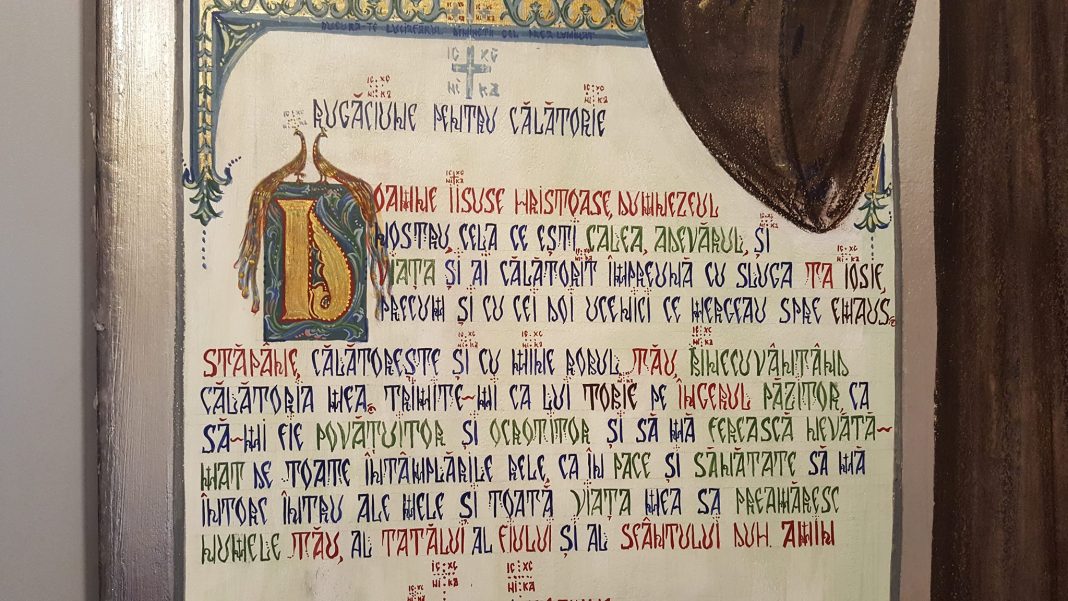 BUCURĂ-TE LUCEAFĂRUL DIMINEȚII CEL PREA LUMINAT
IC XC
NI KA
RUGĂCIUNE PENTRU CĂLĂTORIE
DOAMNE IISUSE HRISTOASE, DUMNEZEUL
NOSTRU, CELA CE EȘTI CALEA, ADEVĂRUL, ȘI
VIAȚA ȘI AI CĂLĂTORIT ÎMPREUNĂ CU SLUGA TA IOSIF,
PRECUM ȘI CU CEI DOI UCENICI CE MERGEAU SPRE EMAUS.
STĂPÂNE, CĂLĂTOREȘTE ȘI CU MINE ROBUL TĂU, BINECUVÂNTÂND
CĂLĂTORIA MEA. TRIMITE-MI CA LUI TOBIE PE ÎNGERUL PĂZITOR, CA
SĂ-MI FIE POVĂȚUITOR ȘI OCROTITOR ȘI SĂ MĂ FEREASCĂ NEVĂTĂ-
MAT DE TOATE ÎNTÂMPLĂRILE RELE, CA ÎN PACE ȘI SĂNĂTATE SĂ MĂ
ÎNTORC ÎNTRU ALE MELE ȘI TOATĂ VIAȚA MEA SA PREAMĂRESC
NUMELE TĂU, AL TATĂLUI AL FIULUI ȘI AL SFÂNTULUI DUH. AMIN
IC XC IC XC
NI KA NI KA